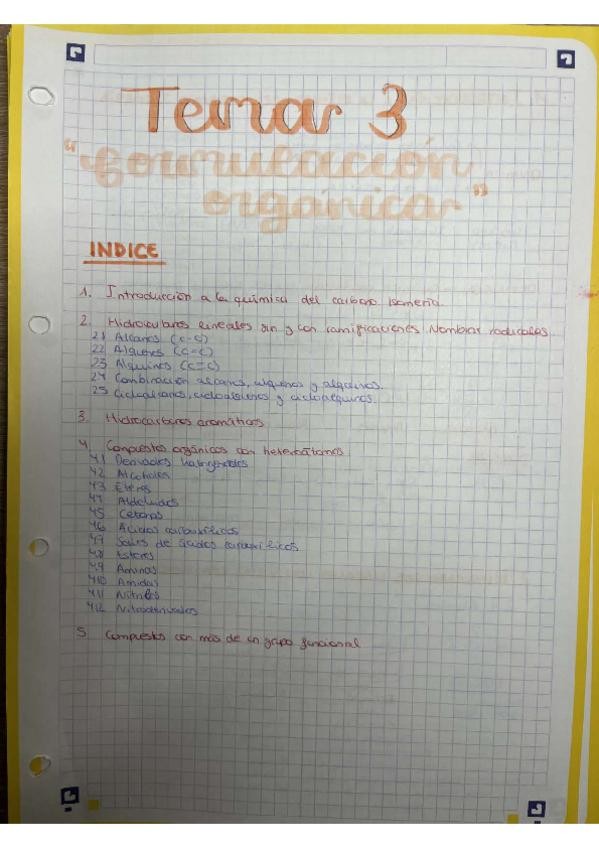 Tema 3
"formulación
orgánica"
INDICE
1. Introducción a la química del carbono. Isomería
2. Hidrocarburos lineales sin y con ramificaciones. Nombrar radicales.
2.1 Alcanos (C-C)
2.2 Alquenos (C=C)
2.3 Alquinos (C≡C)
2.4 Combinación alcanos, alquenos y alquinos.
2.5 Cicloalcanos, cicloalquenos y cicloalquinos.
3. Hidrocarburos aromáticos
4. Compuestos orgánicos con heteroátomos
4.1 Derivados halogenados
4.2 Alcoholes
4.3 Éteres
4.4 Aldehídos
4.5 Cetonas
4.6 Ácidos carboxílicos
4.7 Sales de ácidos carboxílicos
4.8 Ésteres
4.9 Aminas
4.10 Amidas
4.11 Nitrilos
4.12 Nitroderivados
5. Compuestos con más de un grupo funcional